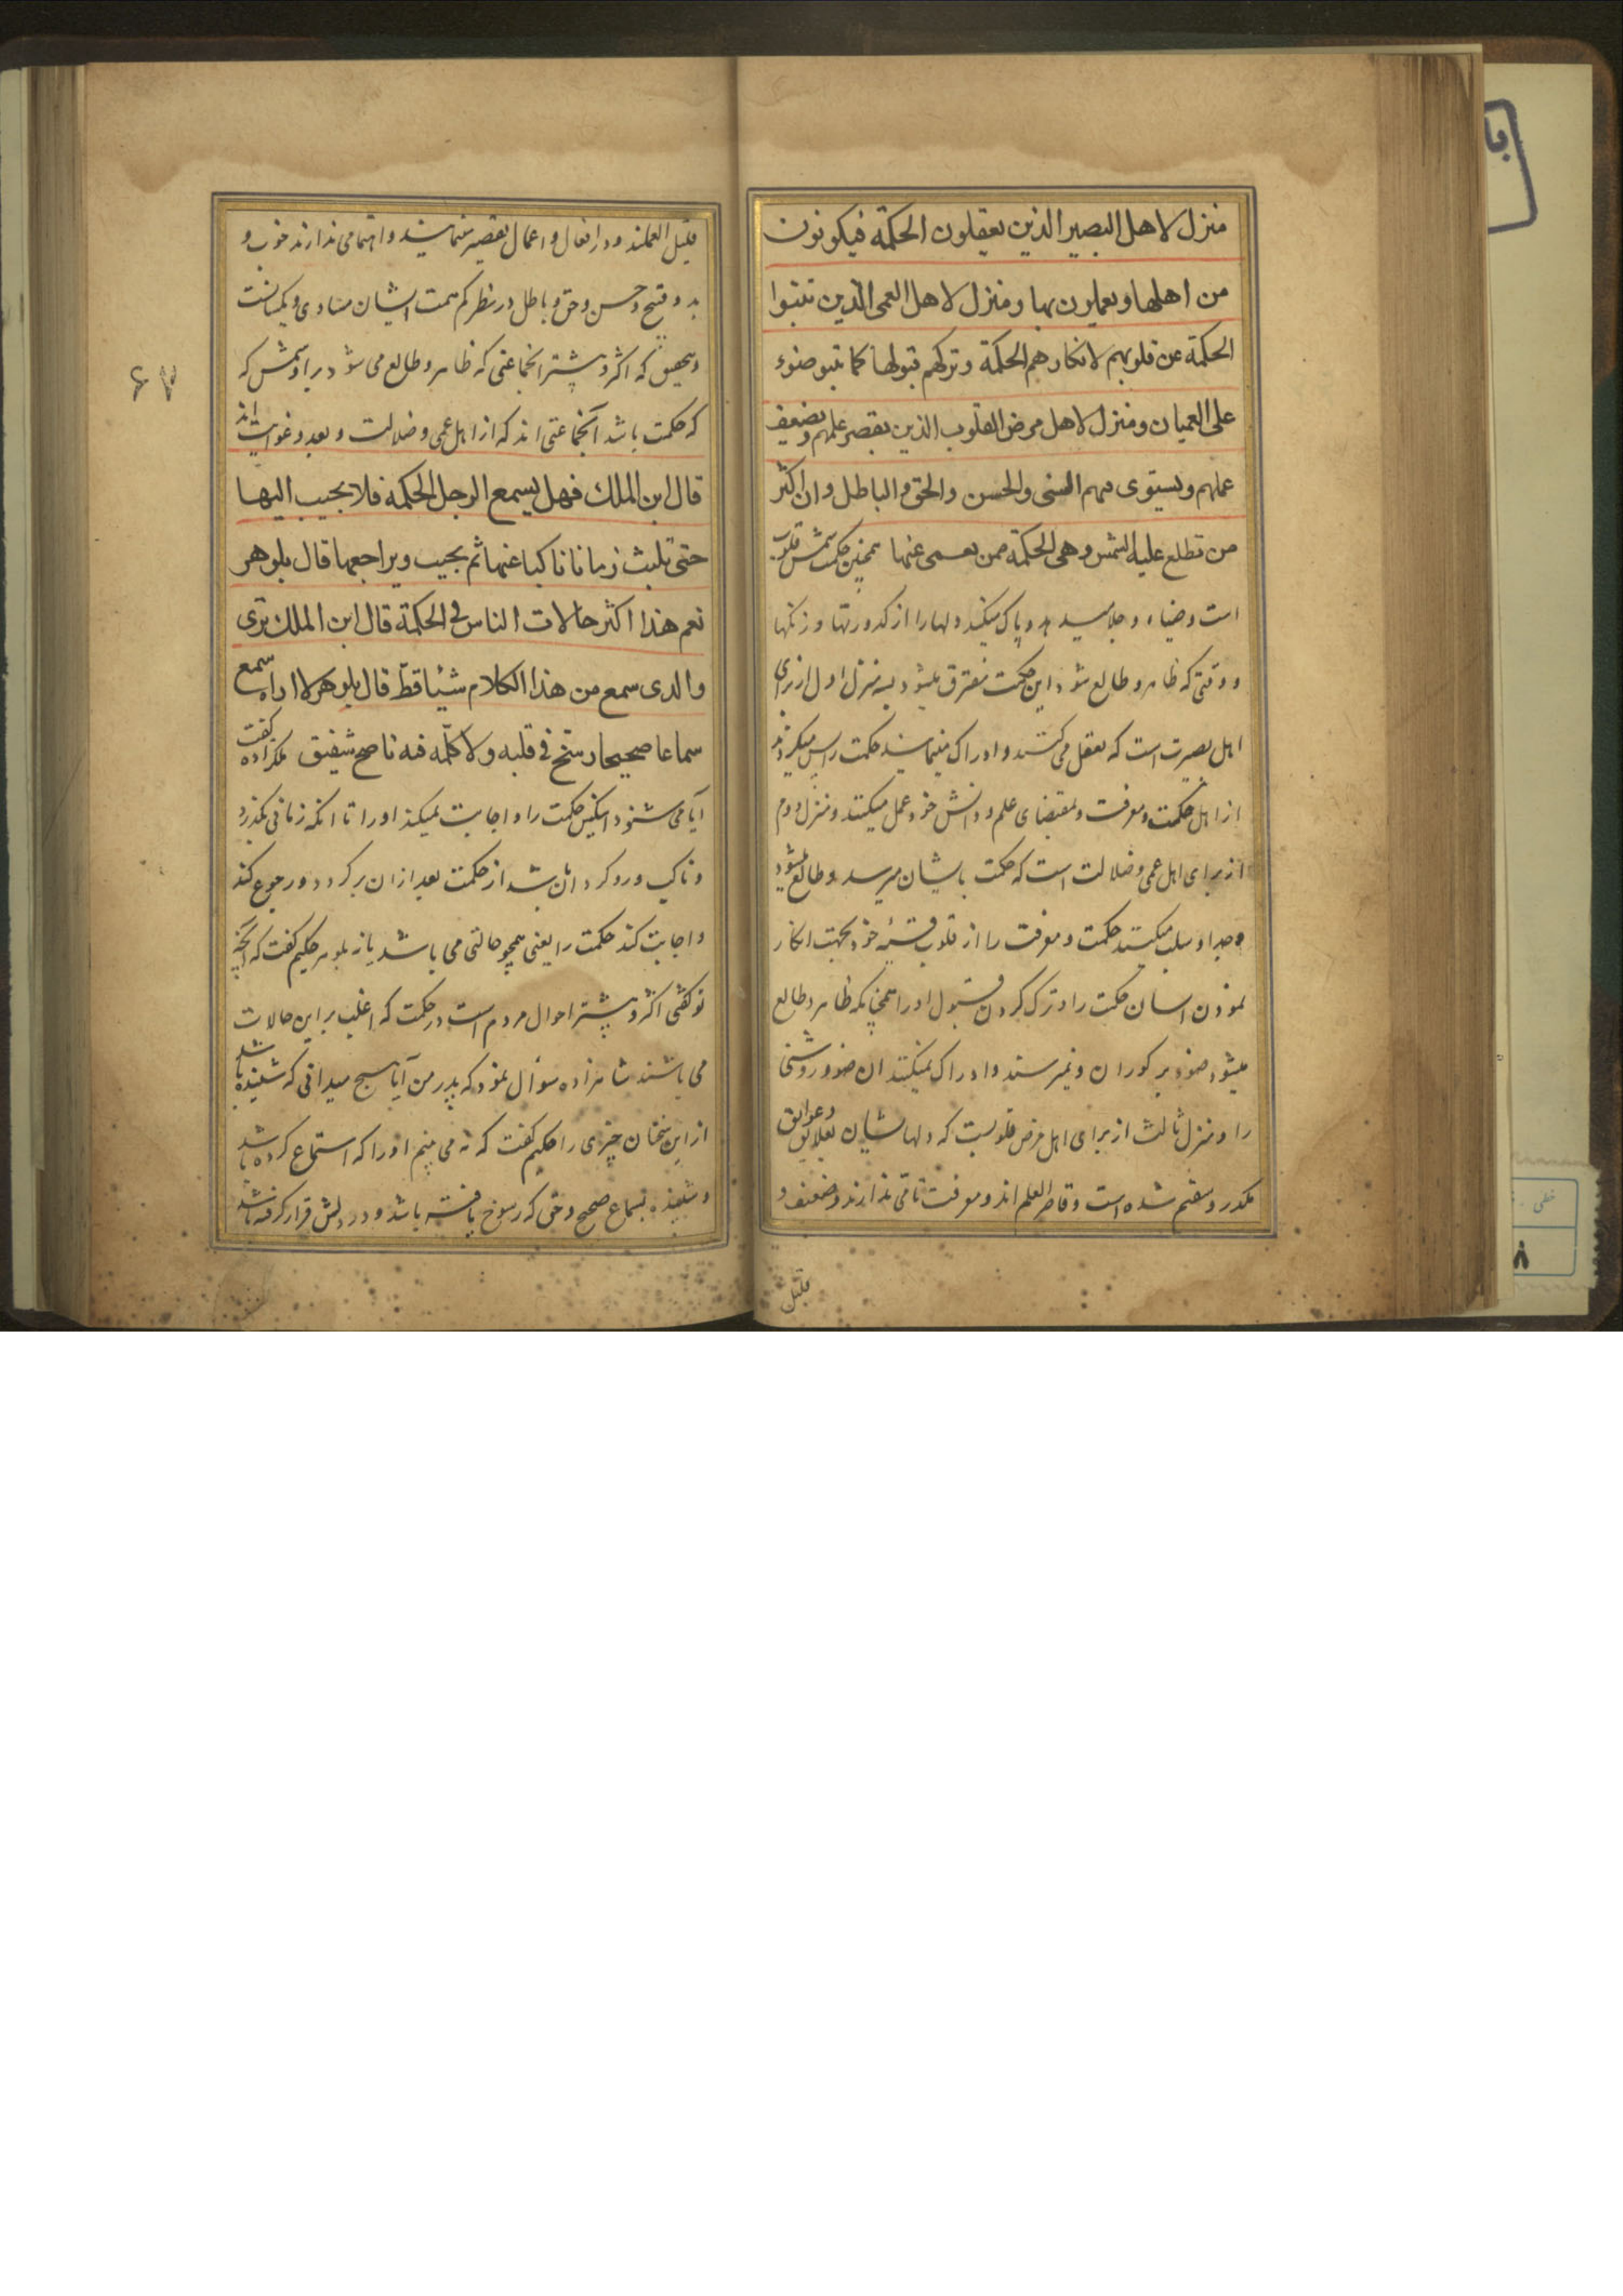 منزل لاهل البصیر الذین یعقلون الحکمة فیکونون
من اهلها و یعملون بها و منزل لاهل العمی الذین تنبوا
الحکمة عن قلوبهم لانکارهم الحکمة و ترکهم قبولها کما ینبو ضوء
علی العمیان و منزل لاهل مرض القلوب الذین یقصر علمهم و یضعف
عملهم و یستوی فیهم السئی والحسن والحق و الباطل و ان اکثر
من تطلع علیه الشمس و هی الحکمة ممن یعمی عنها همچنین حکمت شمس قلوب
است و ضیاء و جلا میدهد و پاک میکند دلها را از کدورتها و زنکها
و وقتی که ظاهر و طالع شود این حکمت متفرق میشود بسه منزل اول از برای
اهل بصیرت است که تعقل می کنند و ادراک مینمایند حکمت را پس میکردند
از اهل حکمت و معرفت و بمقتضای علم و دانش خود عمل میکنند و منزل دوم
از برای اهل عمی و ضلالت است که حکمت بایشان میرسد و طالع میشود
و جدا و سلب میکنند حکمت و معرفت را از قلوب خود بجهت انکار
نمودن ایشان حکمت را و ترک کردن قبول او را همچنانکه ظاهر و طالع
میشود ضوء بر کوران و نمیرسند و ادراک نمیکنند ان ضوء و روشنی
را و منزل ثالث از برای اهل مرض قلوبست که دلهاشان بعلایق و عوایق
مکدر و سقیم شده است و قاصر العلم اند و معرفت تامی ندارند و ضعیف و
قلیل
قلیل العملند و در افعال و اعمال تقصیر مینمایند و اهتمامی ندارند خوب و
بد و قبیح و حسن و حق و باطل در نظر کم همت ایشان مساوی و یکسانست
و بتحقیق که اکثر و بیشتر انجماعتی که ظاهر و طالع می شود بر او شمس که
که حکمت باشد آنجماعتی اند که از اهل عمی و ضلالت و بعد و غوایت اند
قال ابن الملک فهل یسمع الرجل الحکمة فلا یجیب الیها
حتی تلبث زمانا ناکبا عنها ثم یجیب و یراجعها قال بلوهر
نعم هذا اکثر حالات الناس فی الحکمة قال ابن الملک تری
والدی سمع من هذا الکلام شیئا قط قال بلوهر لا اراه سمع
سماعا صحیحا رسخ فی قلبه و لا کلمه فیه ناصح شفیق ملکزاده گفت
آیا می شنود اینکس حکمت را و اجابت نمیکند او را تا انکه زمانی بکذرد
و ناکب و روکردان باشد از حکمت بعد از ان برکردد و رجوع کند
و اجابت کند حکمت را یعنی همچو حالتی می باشد یا نه بلوهر حکیم کفت که آنچه
تو کفتی اکثر و بیشتر احوال مردم است در حکمت که اغلب بر این حالات
می باشند شاهزاده سؤال نمود که پدر من آیا هیچ میدانی که شنیده باشد
از این سخنان چیزی را حکیم کفت که نه می بینم او را که استماع کرده باشد
و شنیده بسماع صحیح و حقی که رسوخ یافته باشد و در دلش قرار کرفته باشد
۶۷
خطی
۸